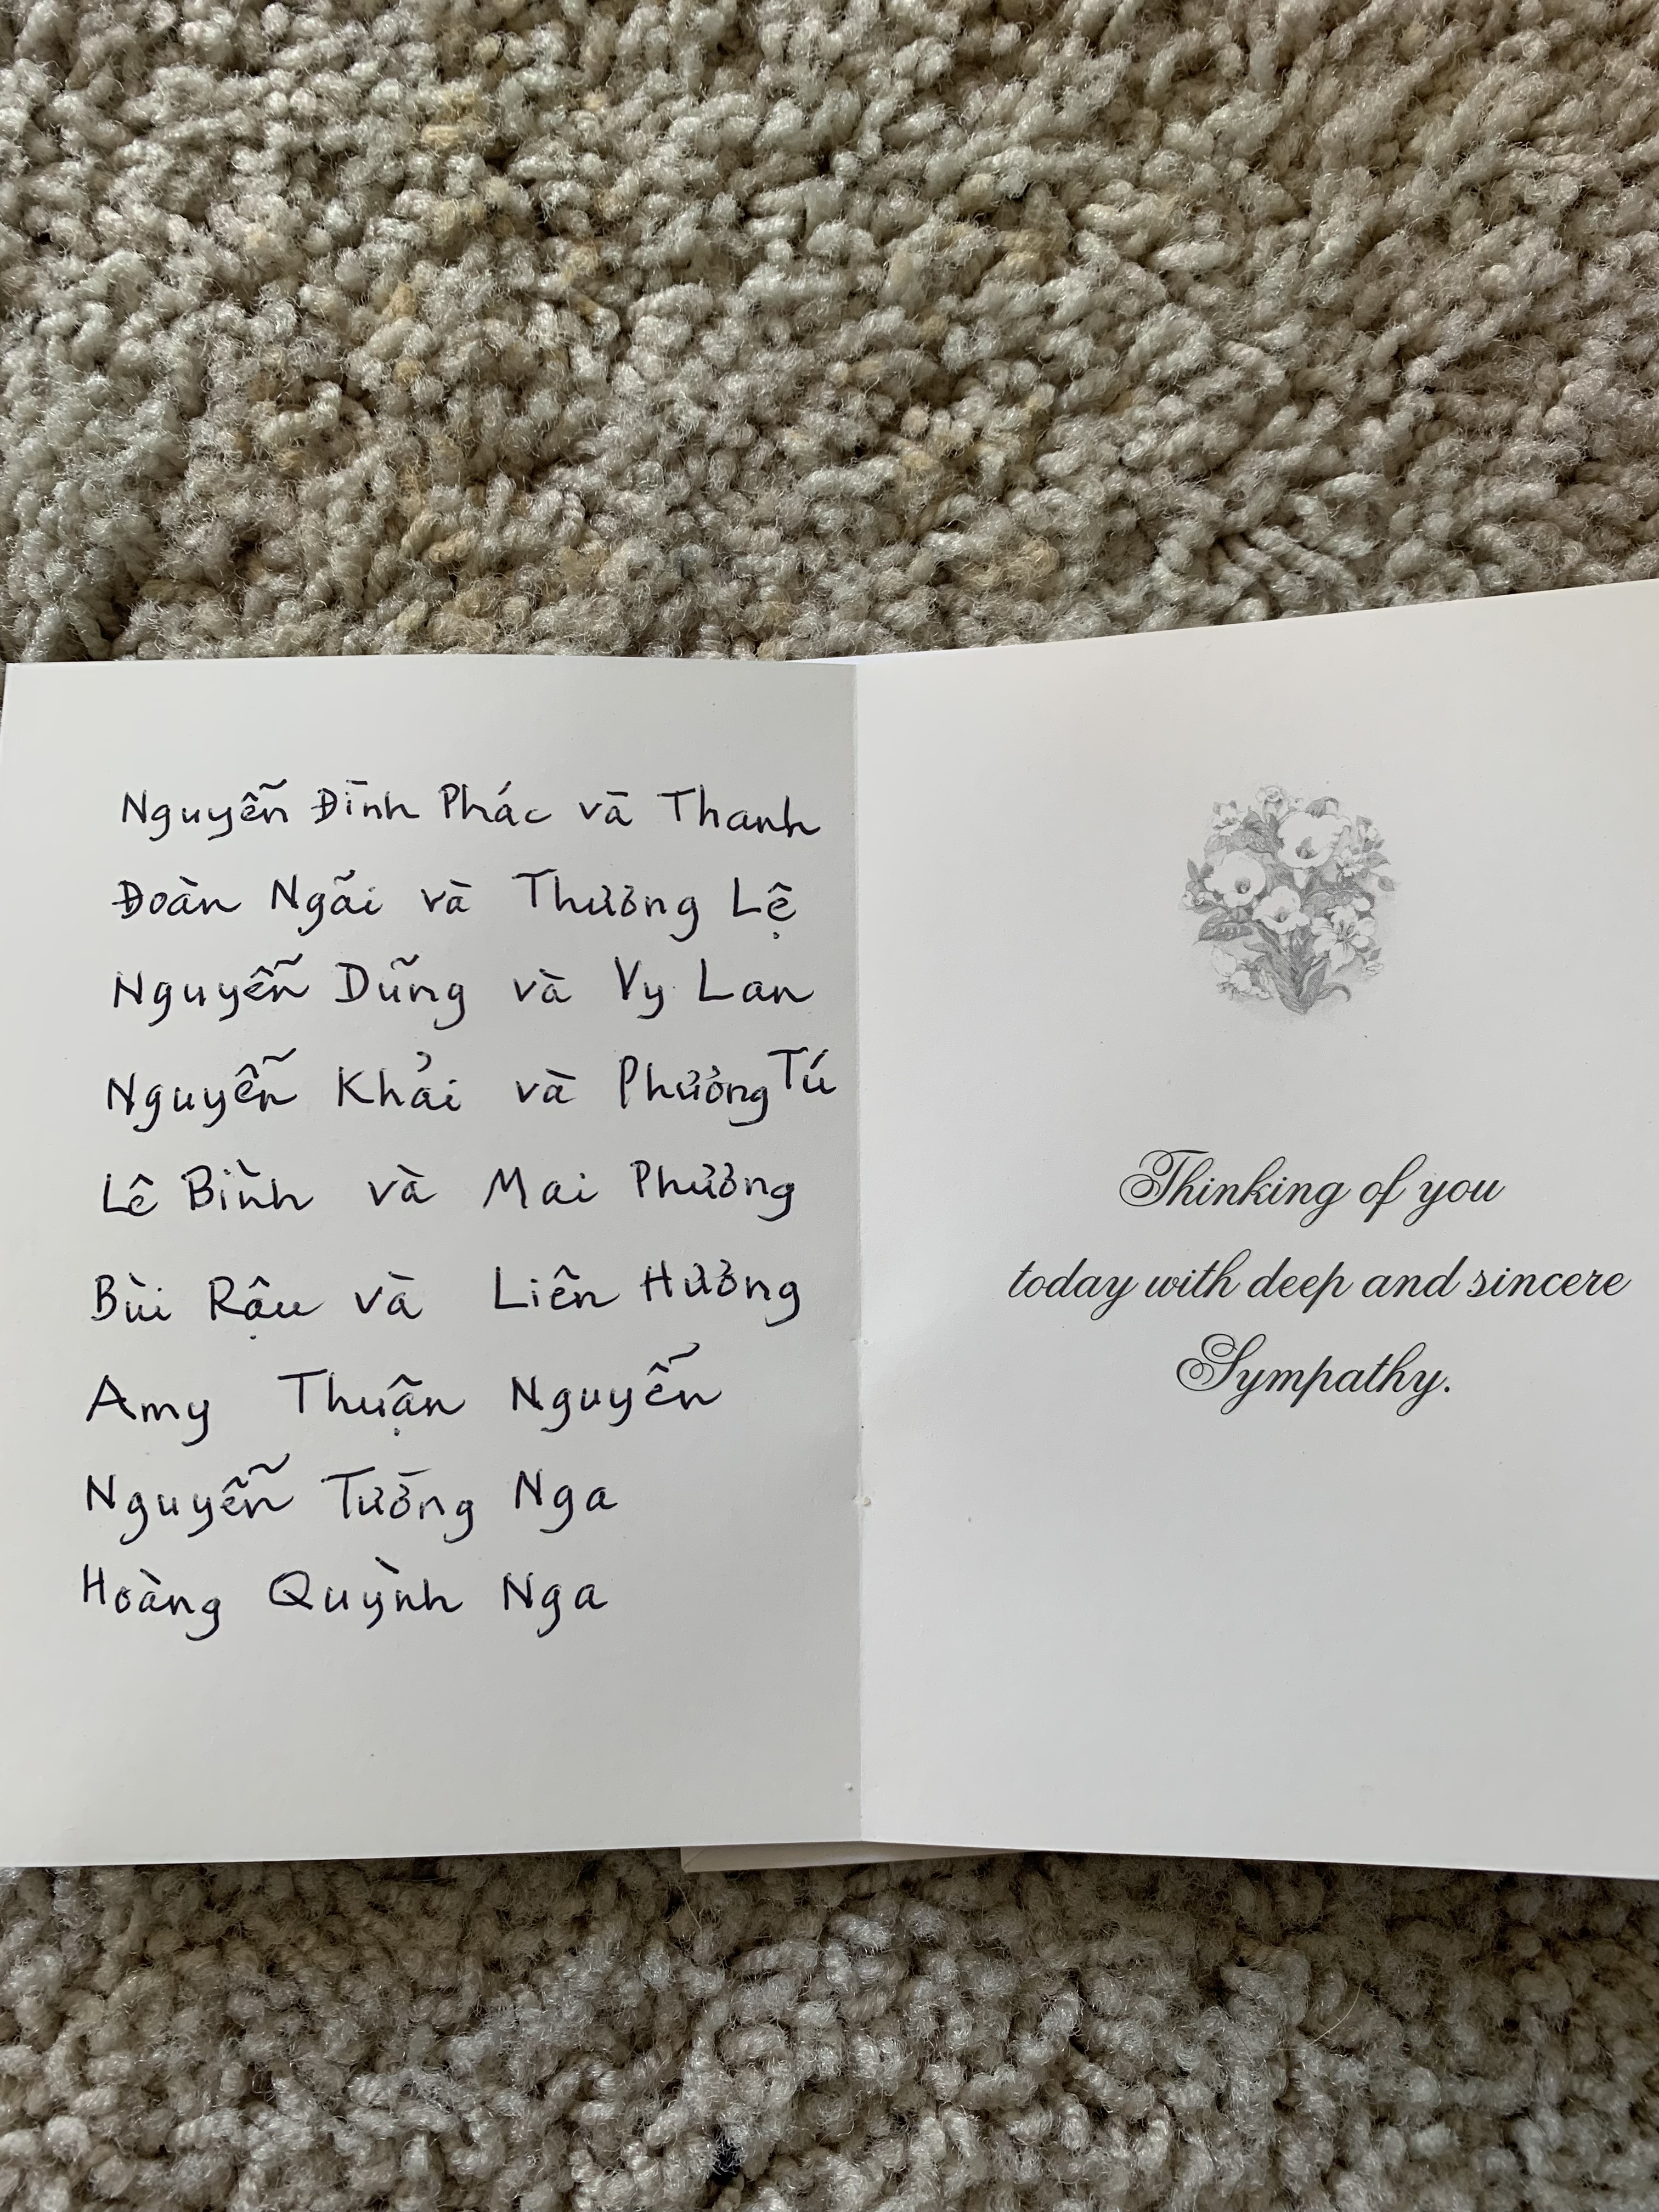 Nguyễn Đình Phác và Thanh
Đoàn Ngãi và Thương Lệ
Nguyễn Dũng và Vy Lan
Nguyễn Khải và Phương Tú
Lê Bình và Mai Phương
Bùi Rậu và Liên Hương
Amy Thuận Nguyễn
Nguyễn Tường Nga
Hoàng Quỳnh Nga
Thinking of you
today with deep and sincere
Sympathy.